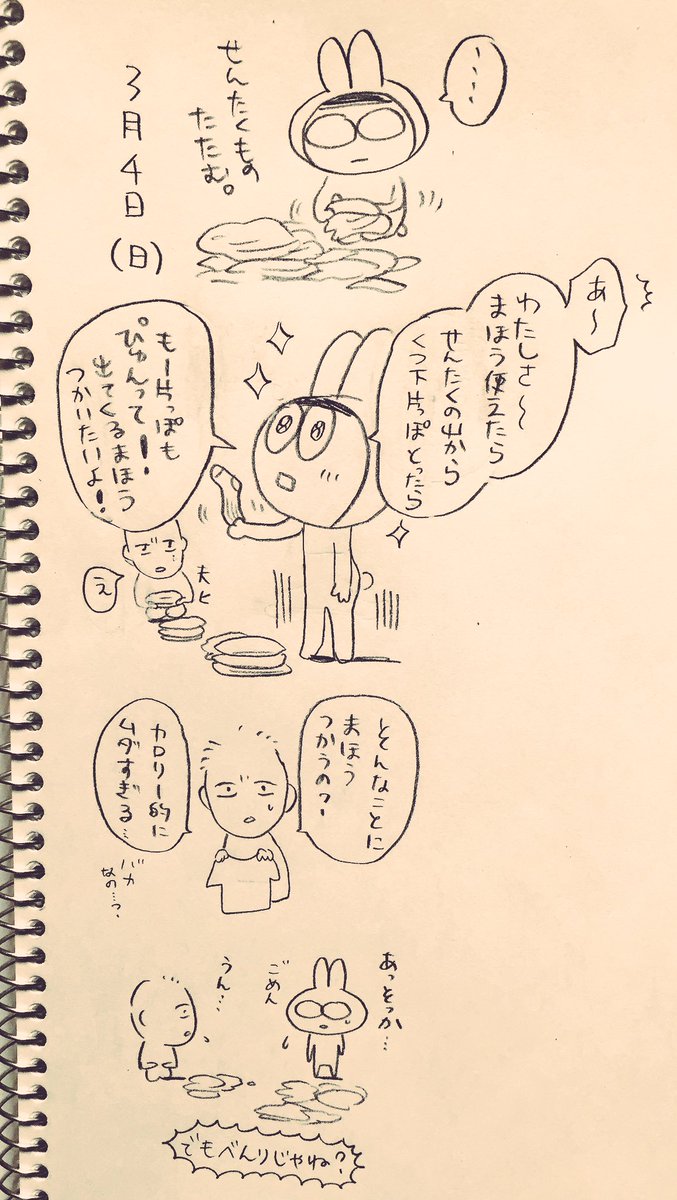 3月4日(日)
せんたくもの
たたむ。
....
あ〜
わたしさ〜〜
まほう使えたら
せんたくの山から
くつ下片っぽとったら
もー片っぽも
ぴゅんって!!
出てくるまほう
つかいたいよ!
え
夫
そんなことに
まほう
つかうの?
カロリー的に
ムダすぎる…
バカ
なの…?
あっそっか…
ごめん
うん…
でもべんりじゃね?